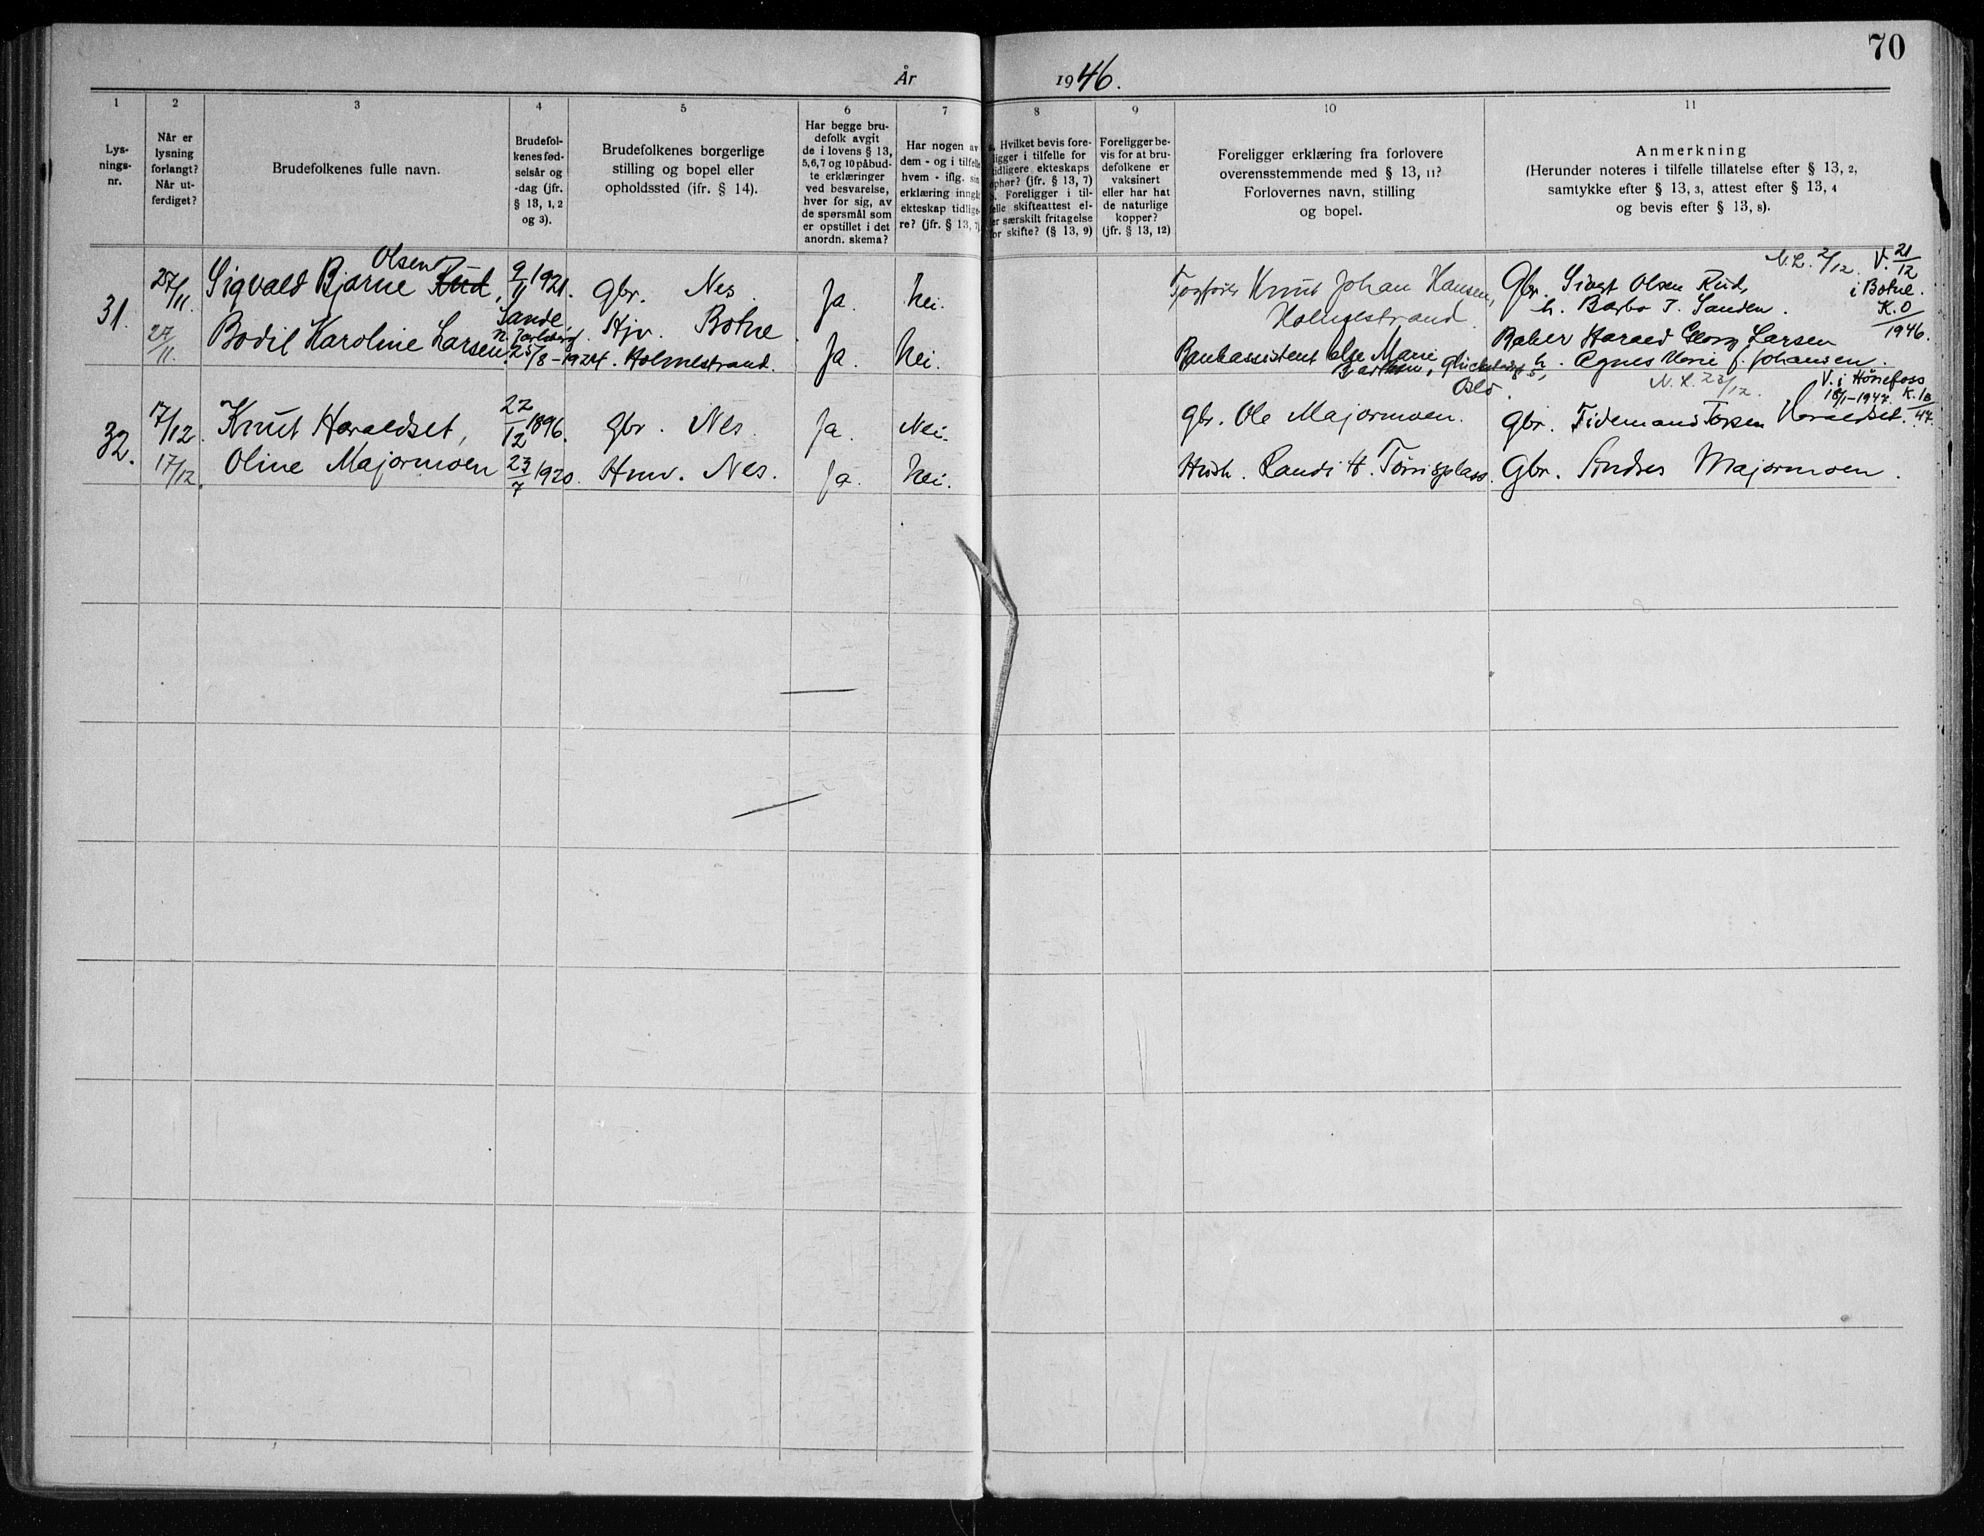 70
År 1946.
1 2 3 4 5 6 7 8 9 10 11
Lys-
nings-
nr.
Når er
lysning
forlangt?
Når ut-
ferdiget?
Brudefolkenes fulle navn.
Brudefol-
kenes fød-
selsår og
-dag (jfr.
§ 13, 1, 2
og 3).
Brudefolkenes borgerlige
stilling og bopel eller
opholdssted (jfr. § 14).
Har begge bru-
defolk avgit
de i lovens § 13,
5, 6, 7 og 10 påbud-
te erklæringer
ved besvarelse,
hver for sig, av
de spørsmål som
er opstillet i det
anordn. skema?
Har nogen av
dem - og i tilfelle
hvem - iflg. sin
erklæring inngåt
ekteskap tidlige-
re? (jfr. § 13, 7)
a. Hvilket bevis fore-
ligger i tilfelle for
tidligere ekteskaps
ophør? (jfr. § 13, 7)
b. Foreligger i til-
felle skifteattest el-
ler særskilt fritagelse
for skifte? (§ 13, 9)
Foreligger be-
vis for at bru-
defolkene er
vaksinert
eller har hat
de naturlige
kopper?
(jfr. § 13, 12)
Foreligger erklæring fra forlovere
overensstemmende med § 13, 11?
Forlovernes navn, stilling
og bopel.
Anmerkning
(Herunder noteres i tilfelle tillatelse efter § 13, 2,
samtykke efter § 13, 3, attest efter § 13, 4
og bevis efter § 13, 8).
31.
27/11.
27/11.
Olsen
Sigvald Bjarne Rud,
Bodil Karoline Larsen
9/11 1921.
Sande,
N. Jarlsberg.
25/8-1924.
Gbr. Nes.
Hjv. Botne
Holmestrand.
Ja.
Ja.
Nei.
Nei.
Knut Johan Hansen,
Holmestrand.
Bankassistent Else Marie
Oslo.
N.L. 2/12. V. 21/12
i Botne.
K.O
1946.
Gbr. Olsen Rud,
h. Barbo T. Sanden.
Baker Harald Georg Larsen
h. Agnes Marie f. Johansen.
32.
17/12.
17/12.
Knut Haraldset,
Oline Majormoen
22/12 1896.
23/7 1920.
Gbr. Nes.
Hmv. Nes.
Ja.
Ja.
Nei.
Nei.
Gbr. Ole Majormoen.
Hush. Randi H. Tørrisplass.
N.L. 23/12.
V. i Hønefoss
18/1-1947. K. 18/47.
Gbr. Tidemand Haraldset.
Gbr. Andres Majormoen.